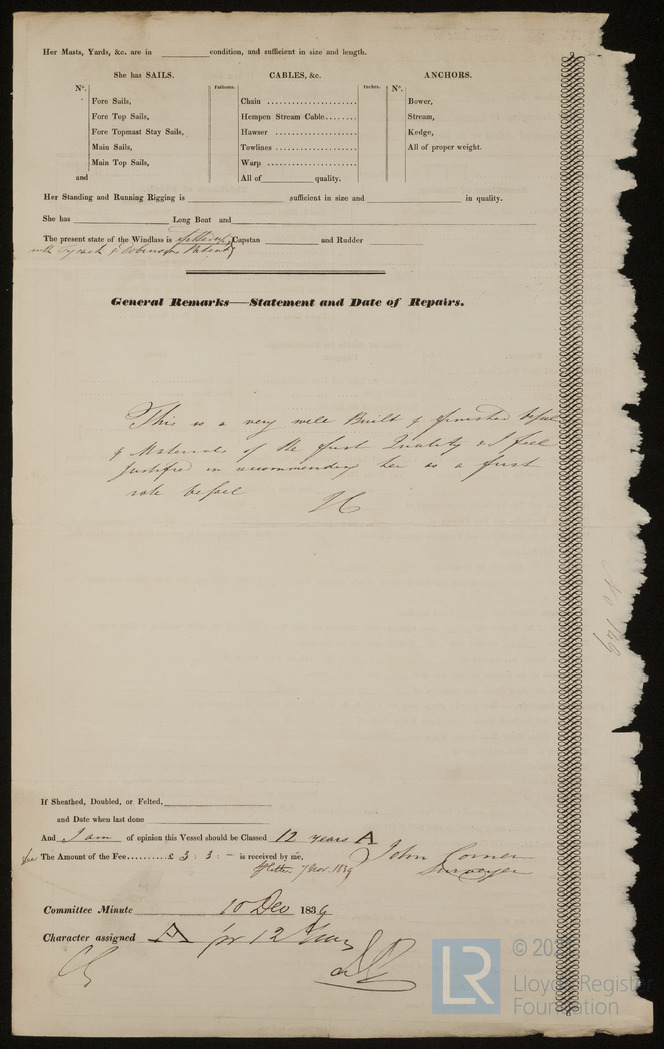 Her Masts, Yards, &c. are in ________ condition, and sufficient in size and length.
She has SAILS.
CABLES, &c.
ANCHORS.
No.
Fathoms.
Inches.
No.
Fore Sails,
Chain ......................
Bower,
Fore Top Sails,
Hempen Stream Cable........
Stream,
Fore Topmast Stay Sails,
Hawser ....................
Kedge,
Main Sails,
Towlines ......................
All of proper weight.
Main Top Sails,
Warp ......................
and
All of ________ quality.
Her Standing and Running Rigging is ________ sufficient in size and ________ in quality.
She has ________ Long Boat and ________
The present state of the Windlass is Capstan ________ and Rudder ________
with & Robinsons Patent
General Remarks—Statement and Date of Repairs.
This is a very well Built & finished vessel
& Materials of the first Quality & I feel
Justified in recommending her as a first
rate vessel
JC
No 769
If Sheathed, Doubled, or Felted, ________
and Date when last done ________
And I am of opinion this Vessel should be Classed 12 years A
The Amount of the Fee..........£ 3 : 3 : - is received by me,
John Corner
Surveyor
7 Nov. 1839
Committee Minute 10 Dec 1839
Character assigned A for 12 Years
Lloyd's Register
Foundation
LR